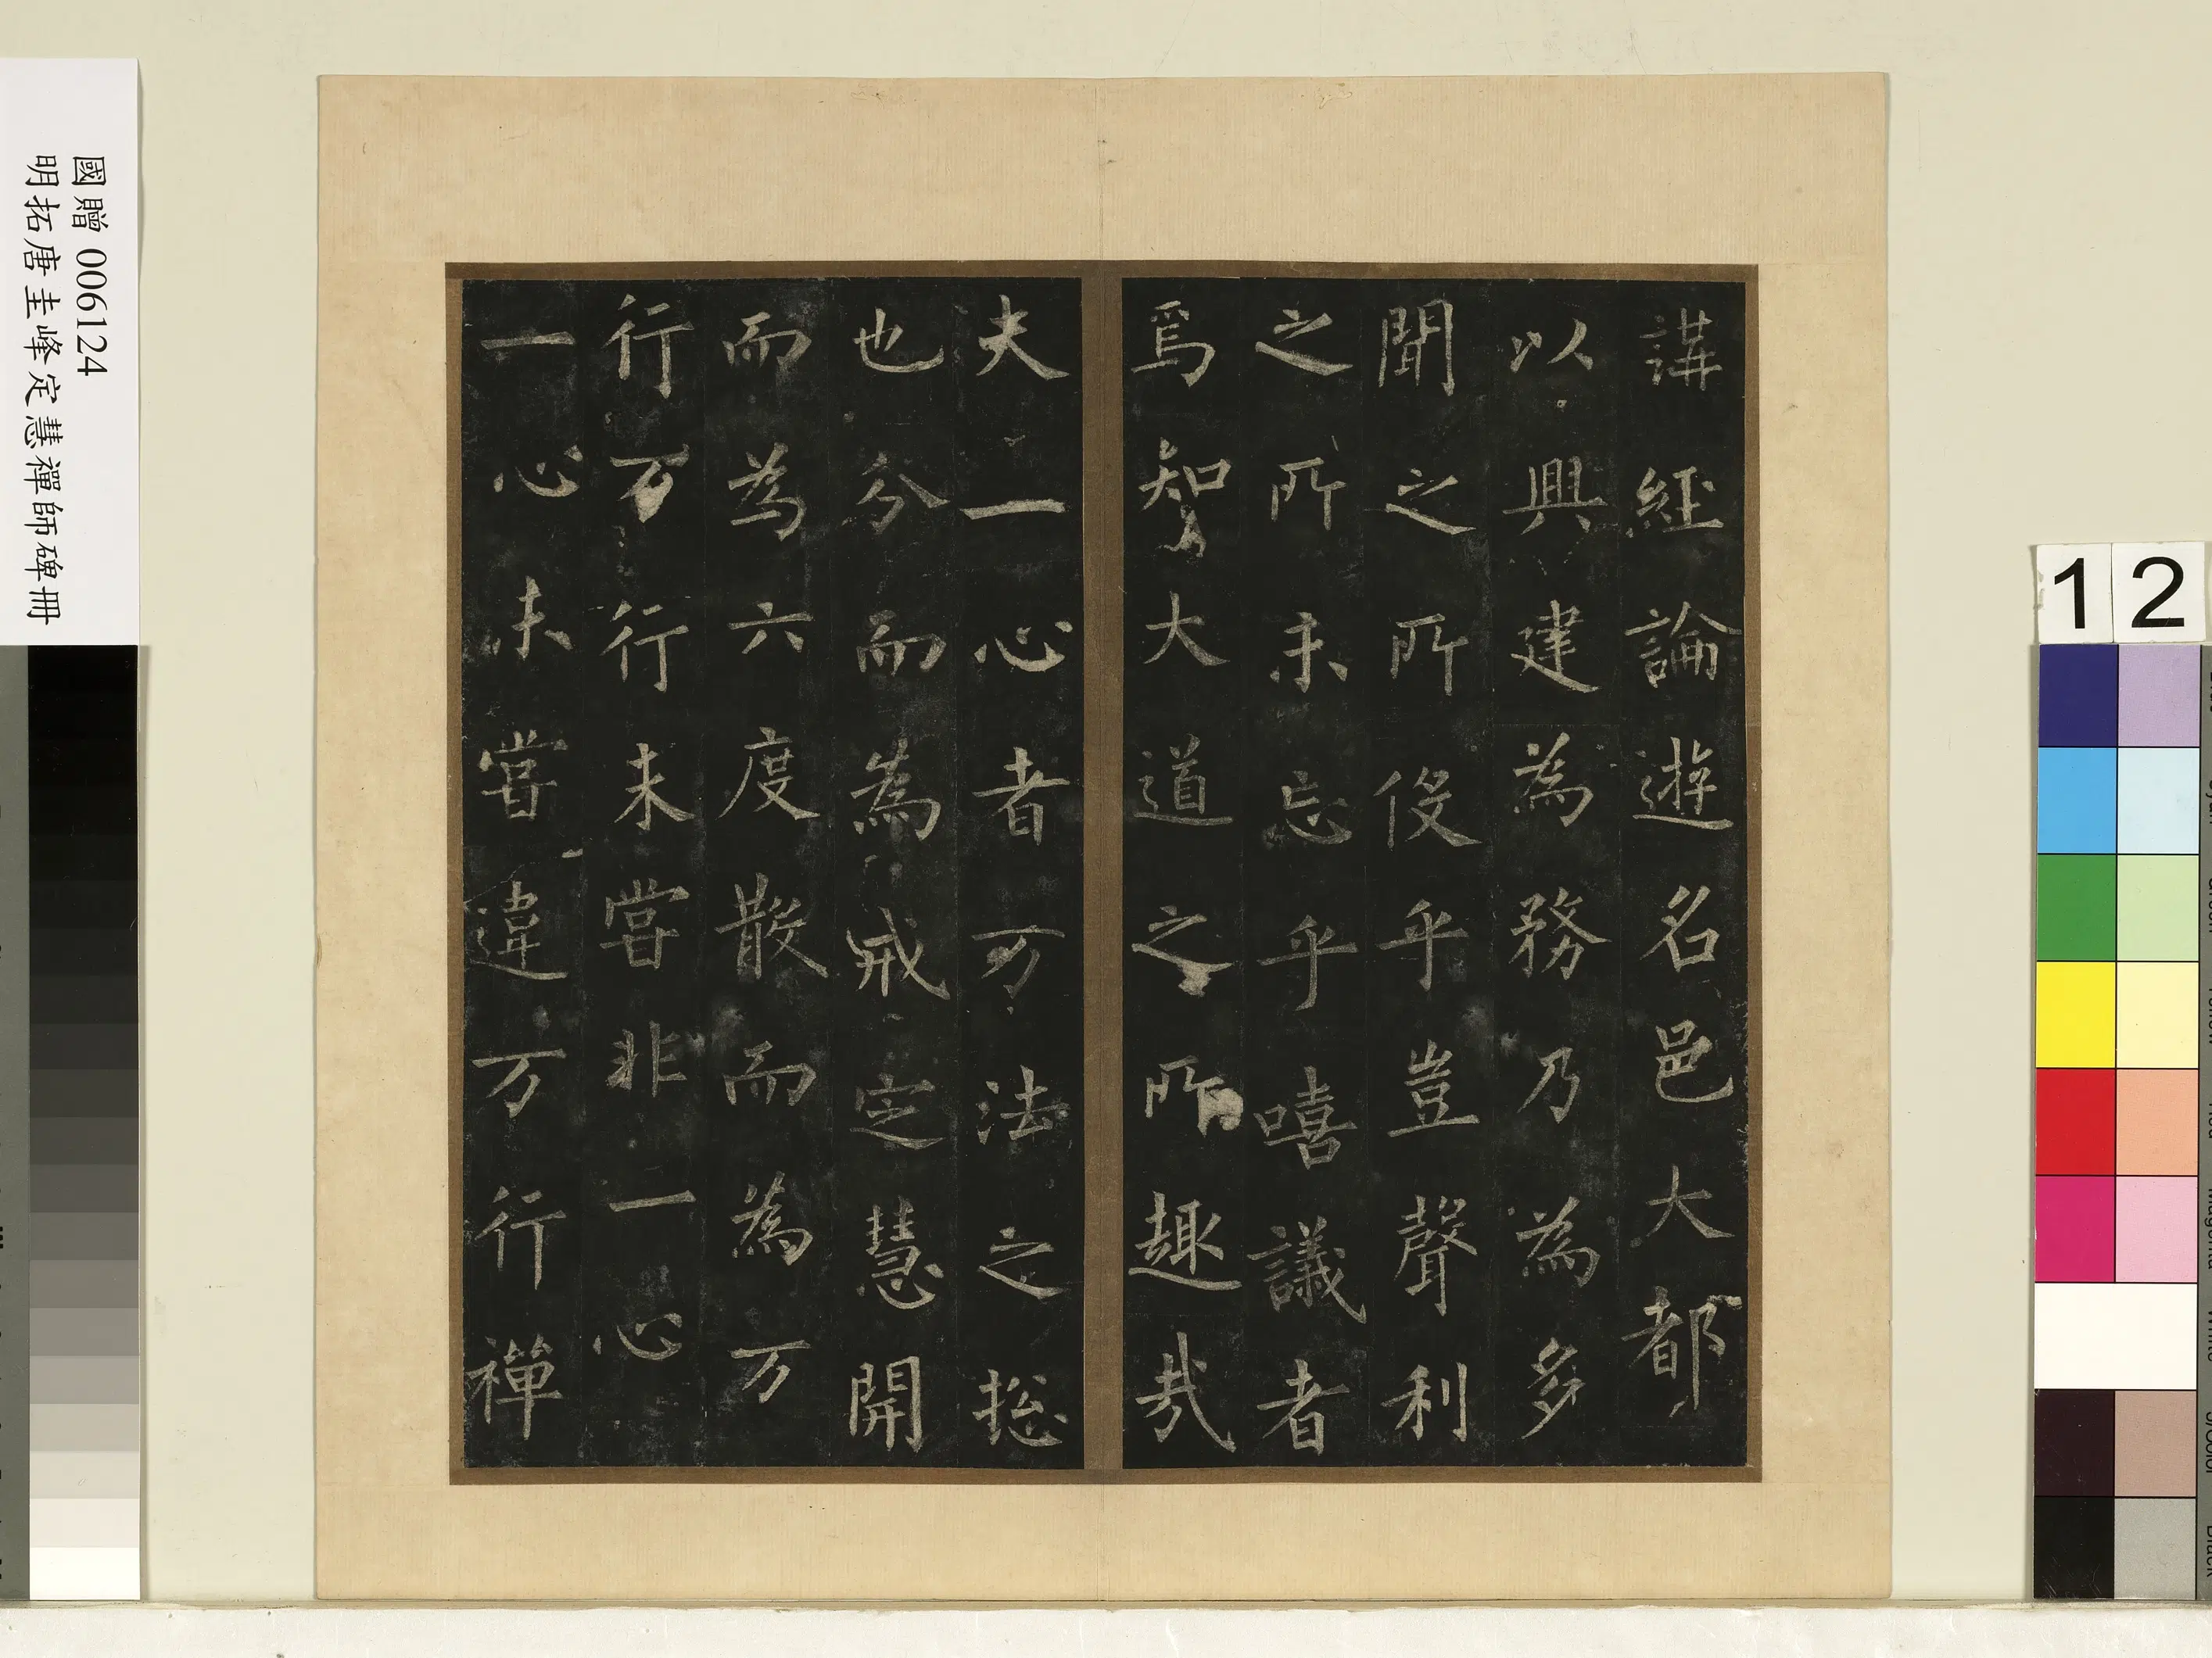 國贈 006124
明拓唐圭峰定慧禪師碑冊
12
講經論遊名邑大都
以興建為務乃為多
聞之所役乎豈聲利
之所未忘乎嘻議者
焉知大道之所趣哉
夫一心者万法之捴
也分而為戒定慧開
而為六度散而為万
行万行未嘗非一心
一心未嘗違万行禪